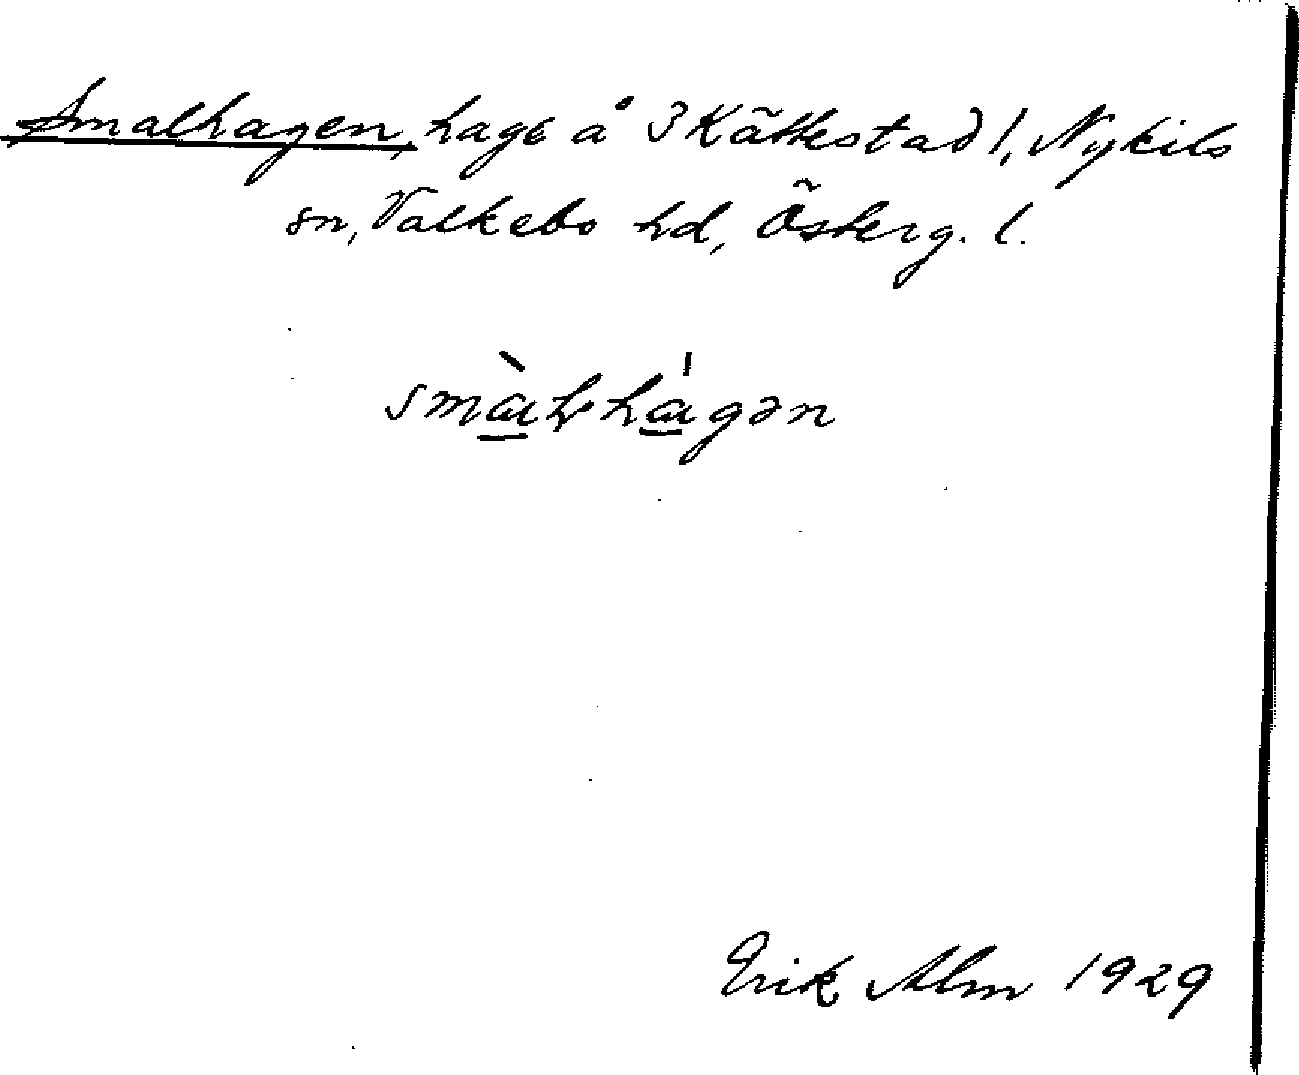 Smalhagen, hage å 3 Kättestad!, Nykils
sn, Valkebo hd, Österg. l.
Erik Alm 1929